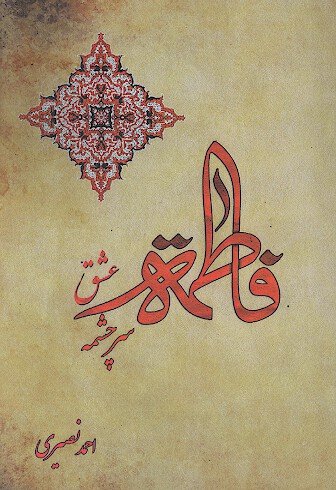 فاطمه
سرچشمه
عشق
احمد نصیری